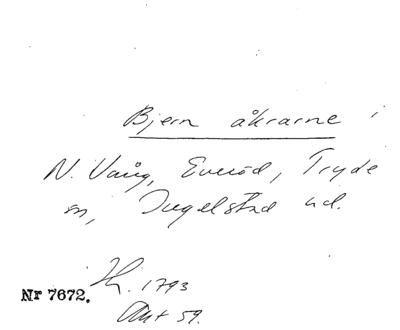 Bjern åkrarne i
N. Vång, Everöd, Tryde
sn, Ingelstad hd.
H. 1793
Nr 7672.
Akt 59.